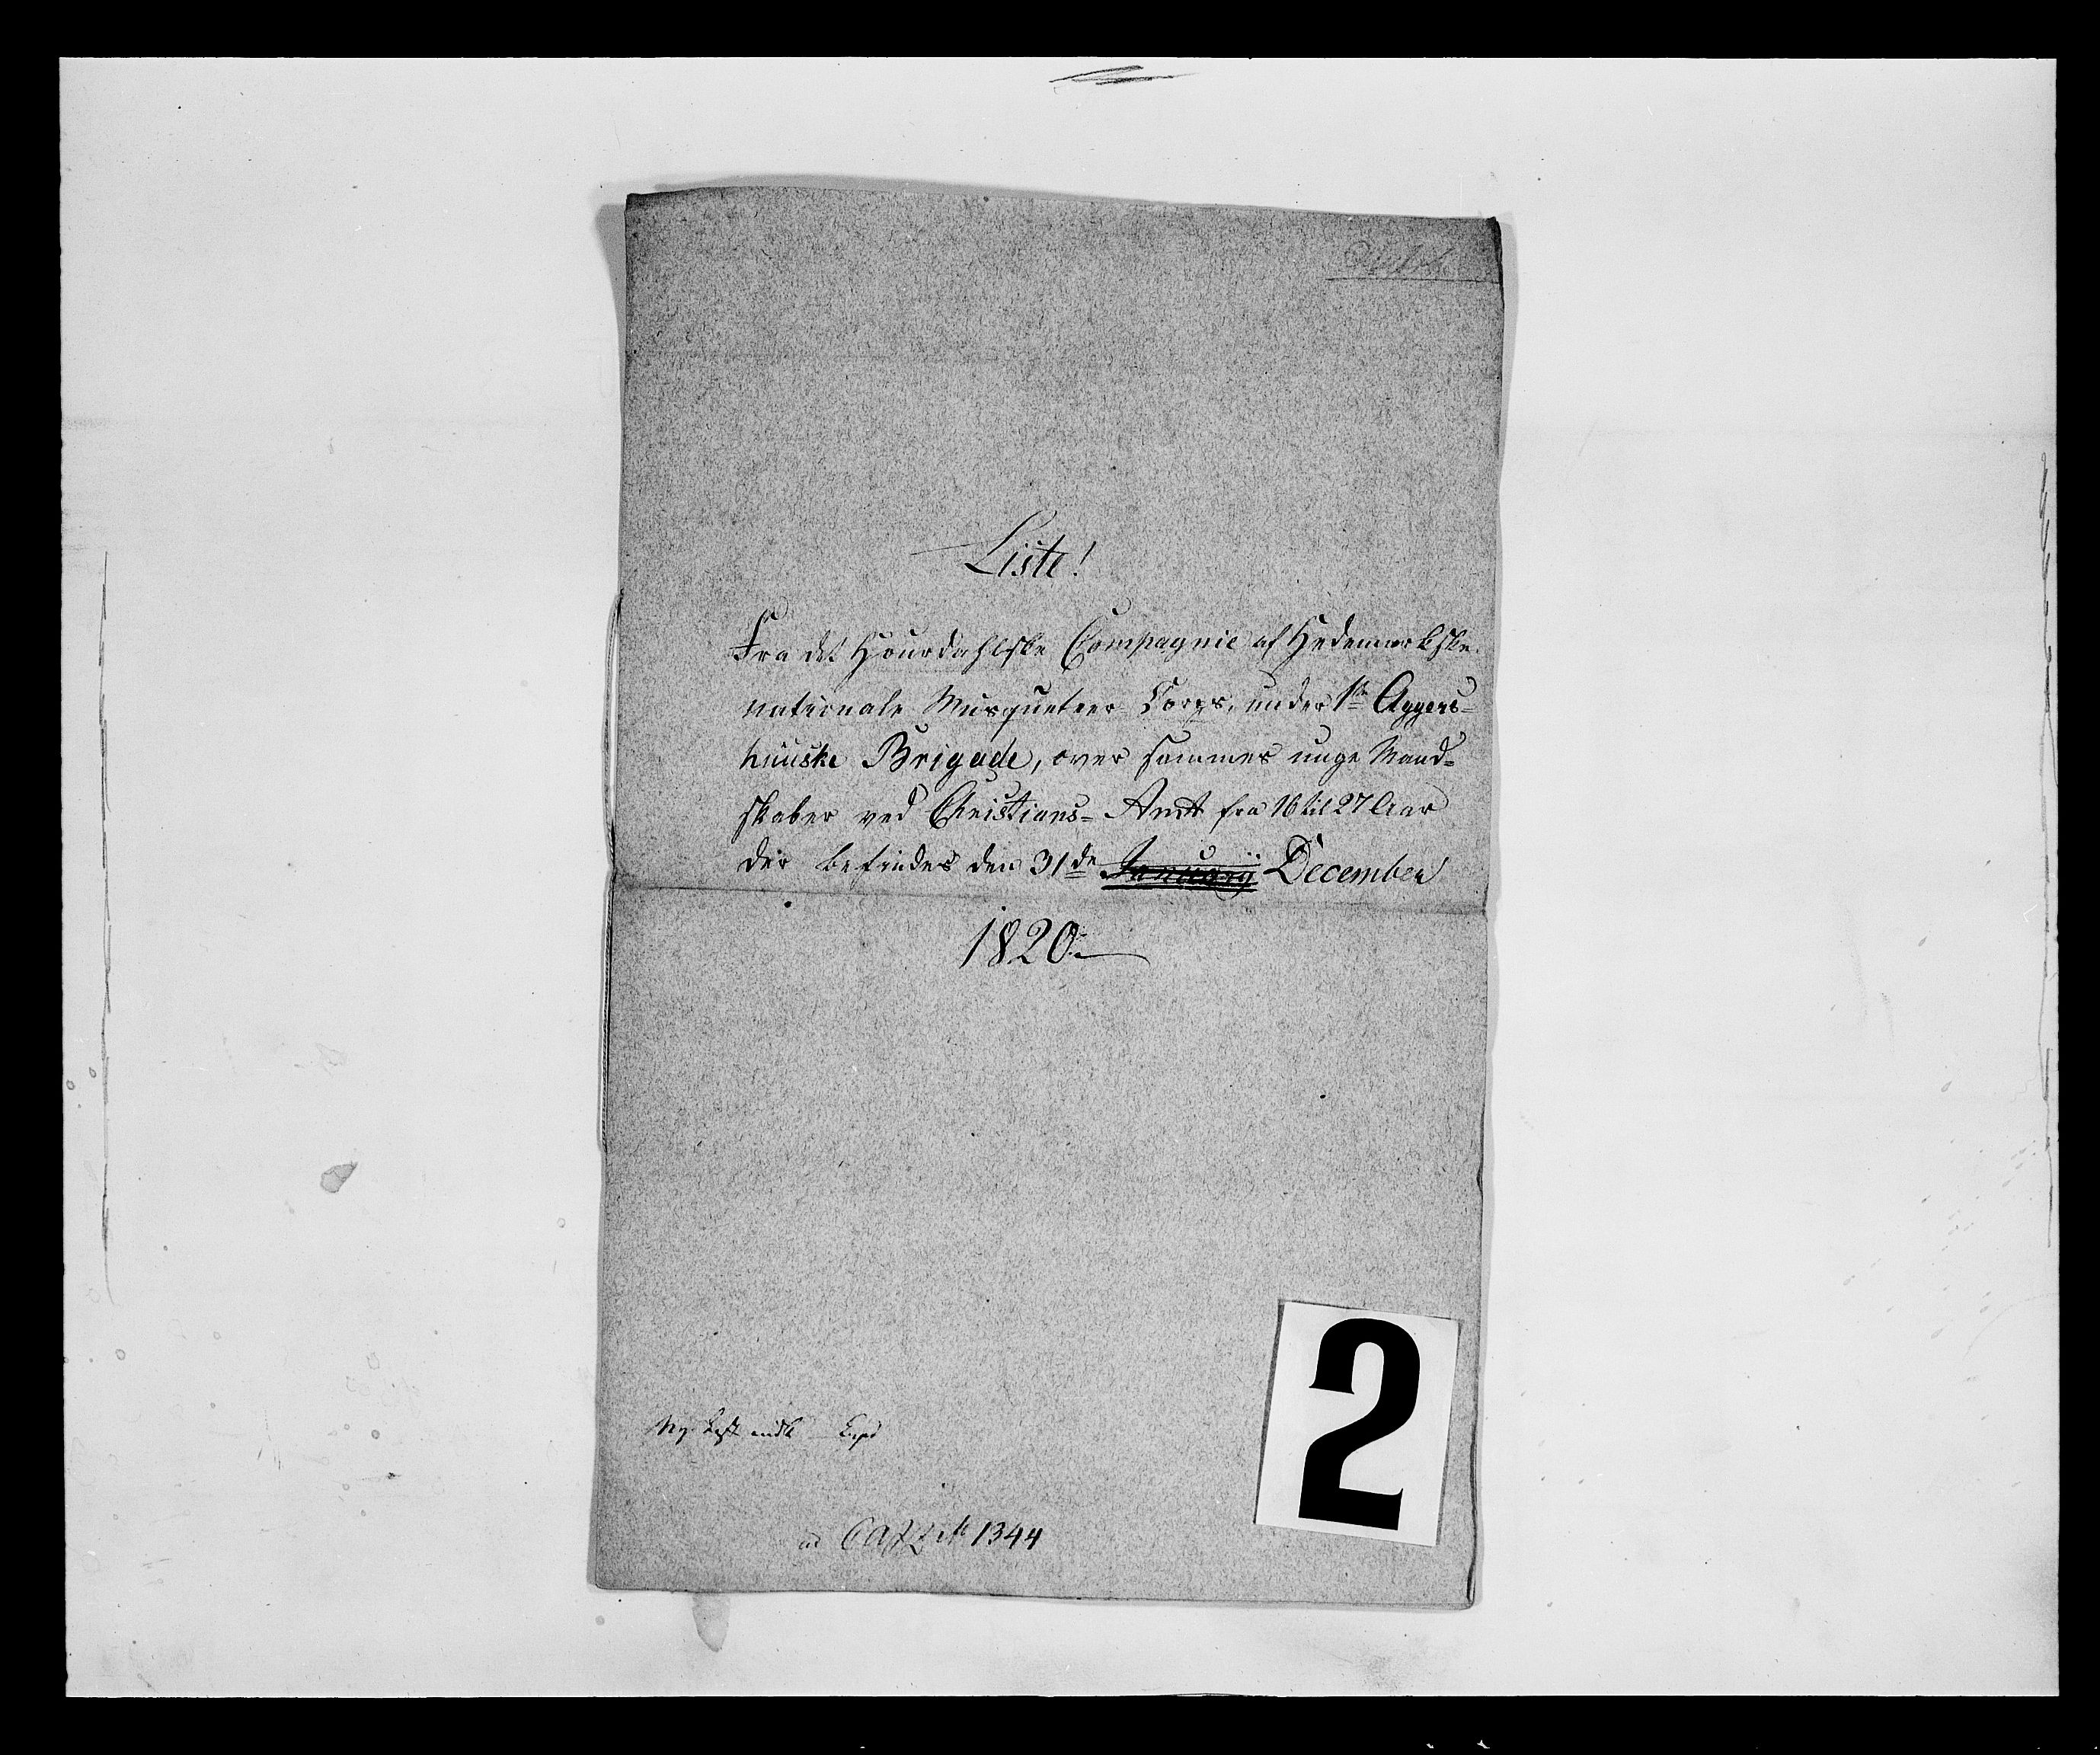 Liste!
Fra det Hourdahlske Compagnie af Hedemarkske
nationale Musqueteer Corps, under 1ste Aggers-
huuske Brigade, over sammes unge Mand-
skaber ved Christians- Amt fra 16 til 27 Aar
der befindes den 31de Januarÿ December
1820.
2
ad No 1344